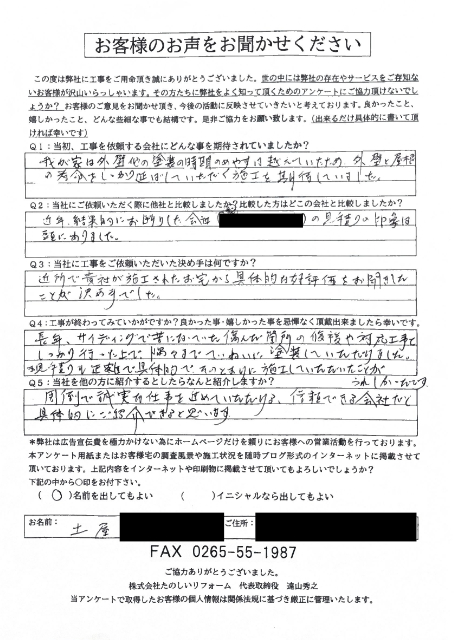 お客様のお声をお聞かせください
この度は弊社に工事をご用命頂き誠にありがとうございました。世の中には弊社の存在やサービスをご存知ないお客様が沢山いらっしゃいます。その方たちに弊社をよく知って頂くためのアンケートにご協力頂けないでしょうか？お客様のご意見をお聞かせ頂き、今後の活動に反映させていきたいと考えております。良かったこと、嬉しかったこと、どんな些細な事でも結構です。是非ご協力をお願い致します。（出来るだけ具体的に書いて頂ければ幸いです）
Q1：当初、工事を依頼する会社にどんな事を期待されていましたか？
我が家は外壁他の塗装の時期のめやすは越えていたため、外壁と屋根
の寿命をしっかり延ばしていただく施工を期待していました。
Q2：当社にご依頼いただく際に他社と比較しましたか？比較した方はどこの会社と比較しましたか？
近年、結果的にお断りした会社
の見積りの印象は
頭にありました。
Q3：当社にご依頼いただいた決め手は何ですか？
近所で貴社が施工されたお宅から具体的な好評価をお聞きした
ことが決め手でした。
Q4：工事が終わってみていかがですか？良かった事・嬉しかった事を忌憚なく頂戴出来ましたら幸いです。
長年、サイディングで苦になっていた傷んだ箇所の修復や対応工事を
しっかり行った上で隅々までていねいに塗装していただけました。
見積りも正確で具体的で そのとおりに施工していただいたことが
うれしかったです
Q5：当社を他の方に紹介するとしたらなんと紹介しますか？
周到で誠実な仕事を進めていただける、信頼できる会社だと
具体的にご紹介できると思います。
＊弊社は広告宣伝費を極力かけない為にホームページだけを頼りにお客様への営業活動を行っております。
本アンケート用紙またはお客様宅の調査風景や施工状況を随時ブログ形式のインターネットに掲載させて頂いております。上記内容をインターネットや印刷物に掲載させて頂いてもよろしいでしょうか？
下記の中から〇印をお付下さい。
（ 〇 ）名前を出してもよい （ ）イニシャルなら出してもよい
お名前： 土屋 ご住所：
FAX 0265-55-1987
ご協力ありがとうございました。
株式会社たのしいリフォーム 代表取締役 遠山秀之
当アンケートで取得したお客様の個人情報は関係法規に基づき厳正に管理いたします。